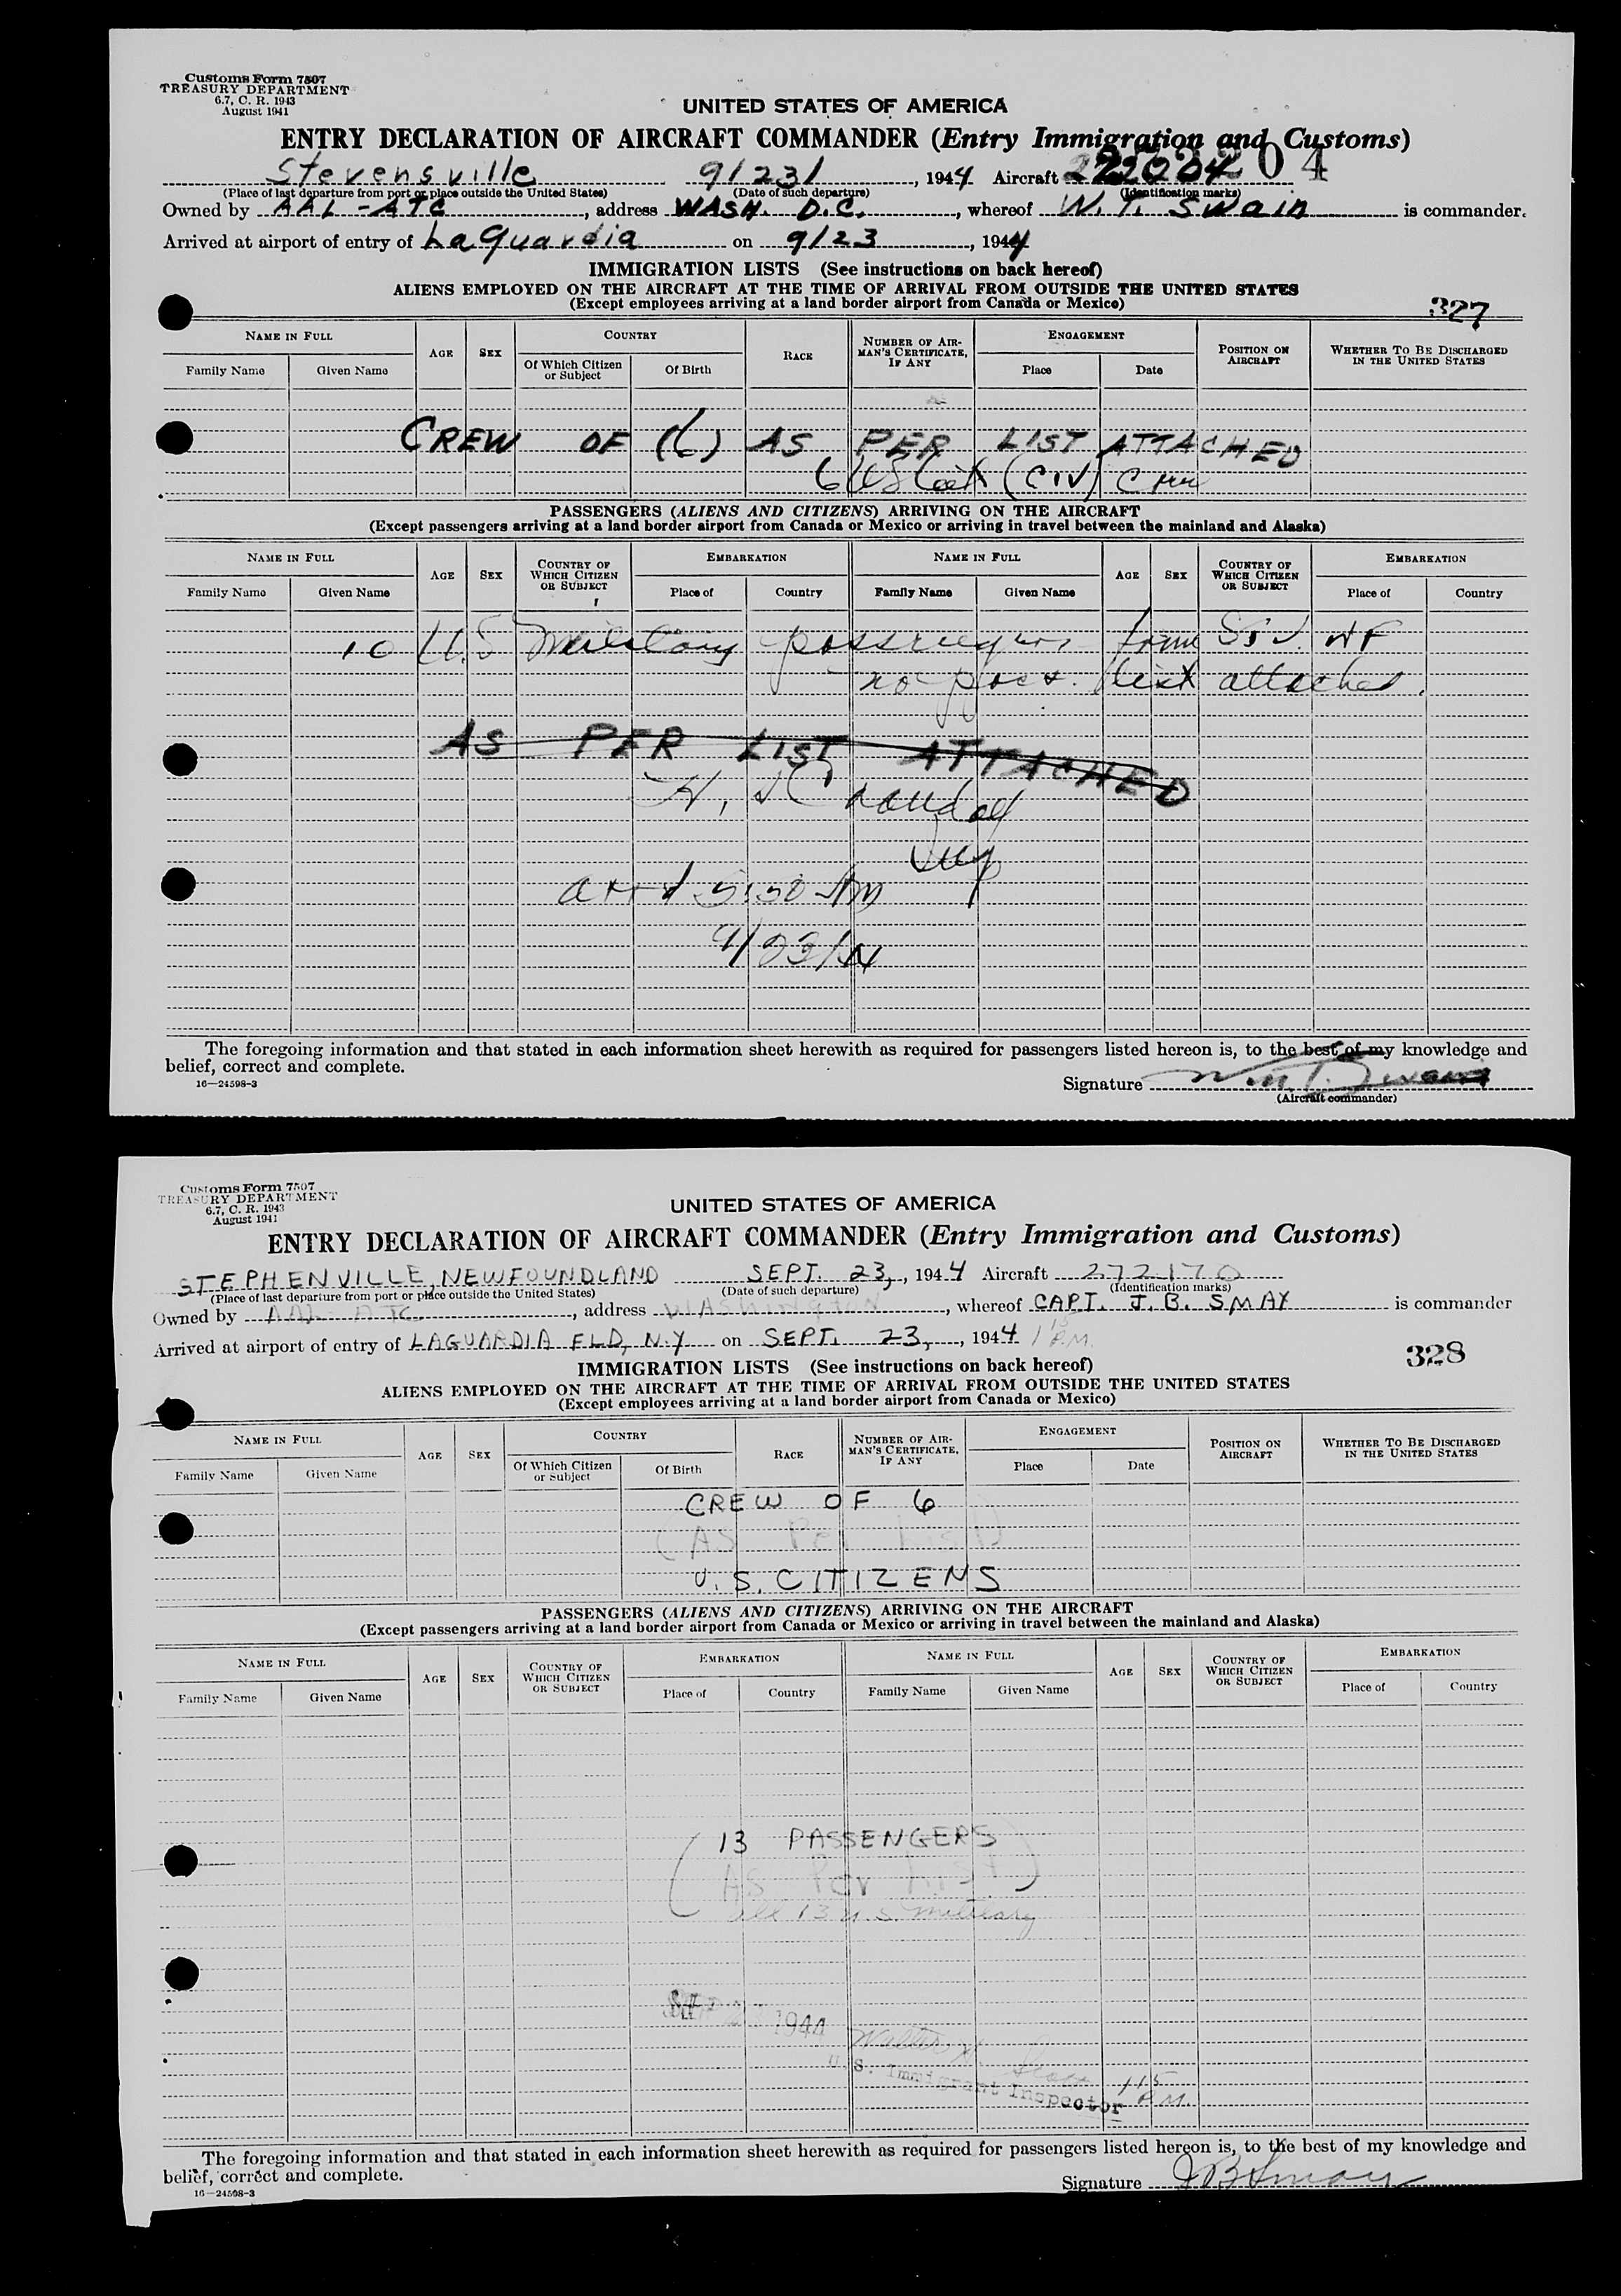 Customs Form 7507
TREASURY DEPARTMENT
6.7, C. R. 1943
August 1941
UNITED STATES OF AMERICA
ENTRY DECLARATION OF AIRCRAFT COMMANDER (Entry Immigration and Customs)
Stevensville 9/23/, 1944 Aircraft 204
(Place of last departure from port or place outside the United States) (Date of such departure) (Identification marks)
Owned by AAL-ATC, address WASH. D.C., whereof W. T. Swain is commander.
Arrived at airport of entry of LaGuardia on 9/23, 1944
IMMIGRATION LISTS (See instructions on back hereof)
ALIENS EMPLOYED ON THE AIRCRAFT AT THE TIME OF ARRIVAL FROM OUTSIDE THE UNITED STATES
(Except employees arriving at a land border airport from Canada or Mexico)
327
NAME IN FULL AGE SEX COUNTRY RACE NUMBER OF AIRMAN'S CERTIFICATE, IF ANY ENGAGEMENT POSITION ON AIRCRAFT WHETHER TO BE DISCHARGED IN THE UNITED STATES
Family Name Given Name Of Which Citizen or Subject Of Birth Place Date
CREW OF (6) AS PER LIST ATTACHED
6 US (CIV) Crew
PASSENGERS (ALIENS AND CITIZENS) ARRIVING ON THE AIRCRAFT
(Except passengers arriving at a land border airport from Canada or Mexico or arriving in travel between the mainland and Alaska)
NAME IN FULL AGE SEX COUNTRY OF WHICH CITIZEN OR SUBJECT EMBARKATION NAME IN FULL AGE SEX COUNTRY OF WHICH CITIZEN OR SUBJECT EMBARKATION
Family Name Given Name Place of Country Family Name Given Name Place of Country
10 U.S Military passengers from NF
no pass. list attached.
AS PER LIST ATTACHED
Insp
arrd 5:50 AM
9/23/44
The foregoing information and that stated in each information sheet herewith as required for passengers listed hereon is, to the best of my knowledge and
belief, correct and complete.
16—24598-3
Signature Wm. T. Swain
(Aircraft commander)
Customs Form 7507
TREASURY DEPARTMENT
6.7, C. R. 1943
August 1941
UNITED STATES OF AMERICA
ENTRY DECLARATION OF AIRCRAFT COMMANDER (Entry Immigration and Customs)
STEPHENVILLE, NEWFOUNDLAND SEPT. 23, , 1944 Aircraft 272170
(Place of last departure from port or place outside the United States) (Date of such departure) (Identification marks)
Owned by AAL-ATC, address Washington, whereof CAPT. J. B. SMAY is commander
Arrived at airport of entry of LAGUARDIA FLD, N.Y on SEPT. 23, , 1944 1 15 P.M.
IMMIGRATION LISTS (See instructions on back hereof)
328
ALIENS EMPLOYED ON THE AIRCRAFT AT THE TIME OF ARRIVAL FROM OUTSIDE THE UNITED STATES
(Except employees arriving at a land border airport from Canada or Mexico)
NAME IN FULL AGE SEX COUNTRY RACE NUMBER OF AIRMAN'S CERTIFICATE, IF ANY ENGAGEMENT POSITION ON AIRCRAFT WHETHER TO BE DISCHARGED IN THE UNITED STATES
Family Name Given Name Of Which Citizen or Subject Of Birth Place Date
CREW OF 6
(AS Per List)
U.S. CITIZENS
PASSENGERS (ALIENS AND CITIZENS) ARRIVING ON THE AIRCRAFT
(Except passengers arriving at a land border airport from Canada or Mexico or arriving in travel between the mainland and Alaska)
NAME IN FULL AGE SEX COUNTRY OF WHICH CITIZEN OR SUBJECT EMBARKATION NAME IN FULL AGE SEX COUNTRY OF WHICH CITIZEN OR SUBJECT EMBARKATION
Family Name Given Name Place of Country Family Name Given Name Place of Country
(13 PASSENGERS
AS Per List)
all 13 U.S. military
1944 Walter
U.S. Immigrant Inspector 1 15 P.M.
The foregoing information and that stated in each information sheet herewith as required for passengers listed hereon is, to the best of my knowledge and
belief, correct and complete.
16—24598-3
Signature JB Smay